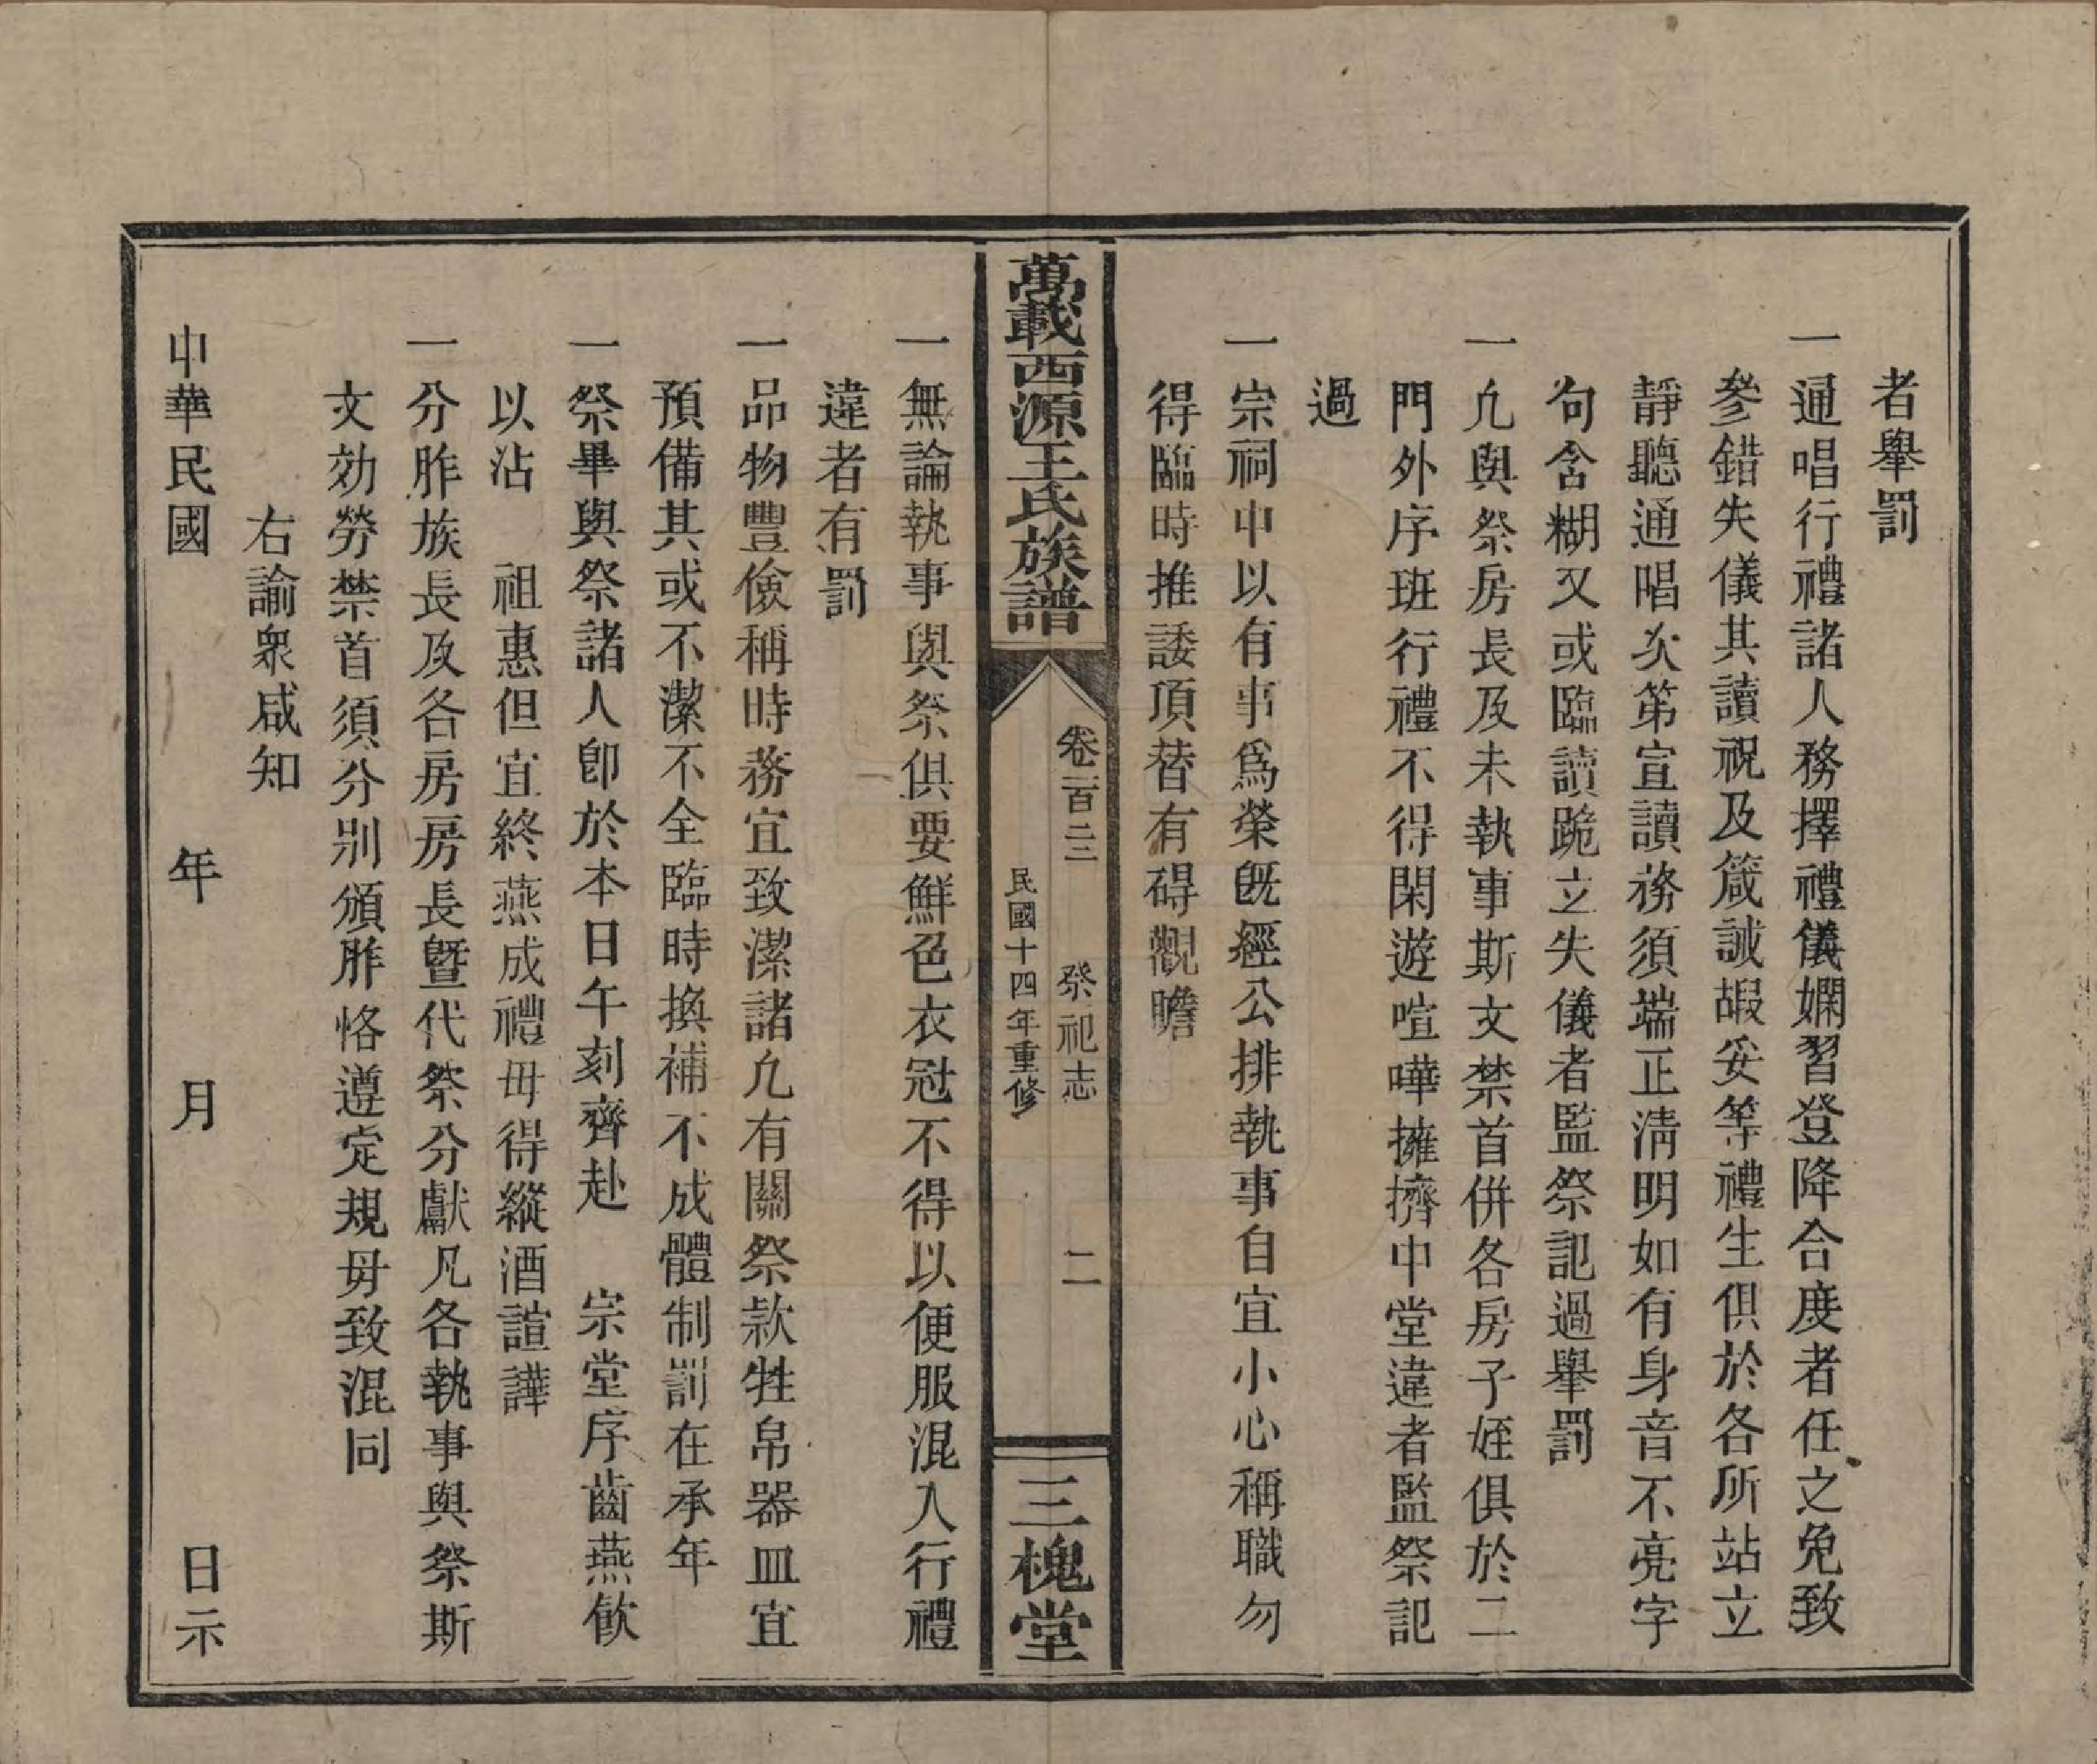 者舉罰
一通唱行禮諸人務擇禮儀嫻習登降合度者任之免致
參錯失儀其讀祝及箴誡嘏妥等禮生俱於各所站立
靜聽通唱次第宣讀務須端正淸明如有身音不亮字
句含糊又或臨讀跪立失儀者監祭記過舉罰
一凢與祭房長及未執事斯文禁首併各房子姪俱於二
門外序班行禮不得閑遊喧嘩擁擠中堂違者監祭記
過
一宗祠中以有事爲榮旣經公排執事自宜小心稱職勿
得臨時推諉頂替有碍觀瞻
萬載西源王氏族譜
卷一百二三
祭祀志
二
民國十四年重修
三槐堂
一無論執事與祭俱要鮮色衣冠不得以便服混入行禮
違者有罰
一品物豐儉稱時務宜致潔諸凢有關祭款牲帛器皿宜
預備其或不潔不全臨時換補不成體制罰在承年
一祭畢與祭諸人卽於本日午刻齊赴　宗堂序齒燕飲
以沾　祖惠但宜終燕成禮毋得縱酒諠譁
一分胙族長及各房房長曁代祭分獻凡各執事與祭斯
文効勞禁首須分別頒胙恪遵定規毋致混同
右諭衆咸知
中華民國　　年　　月　　日示